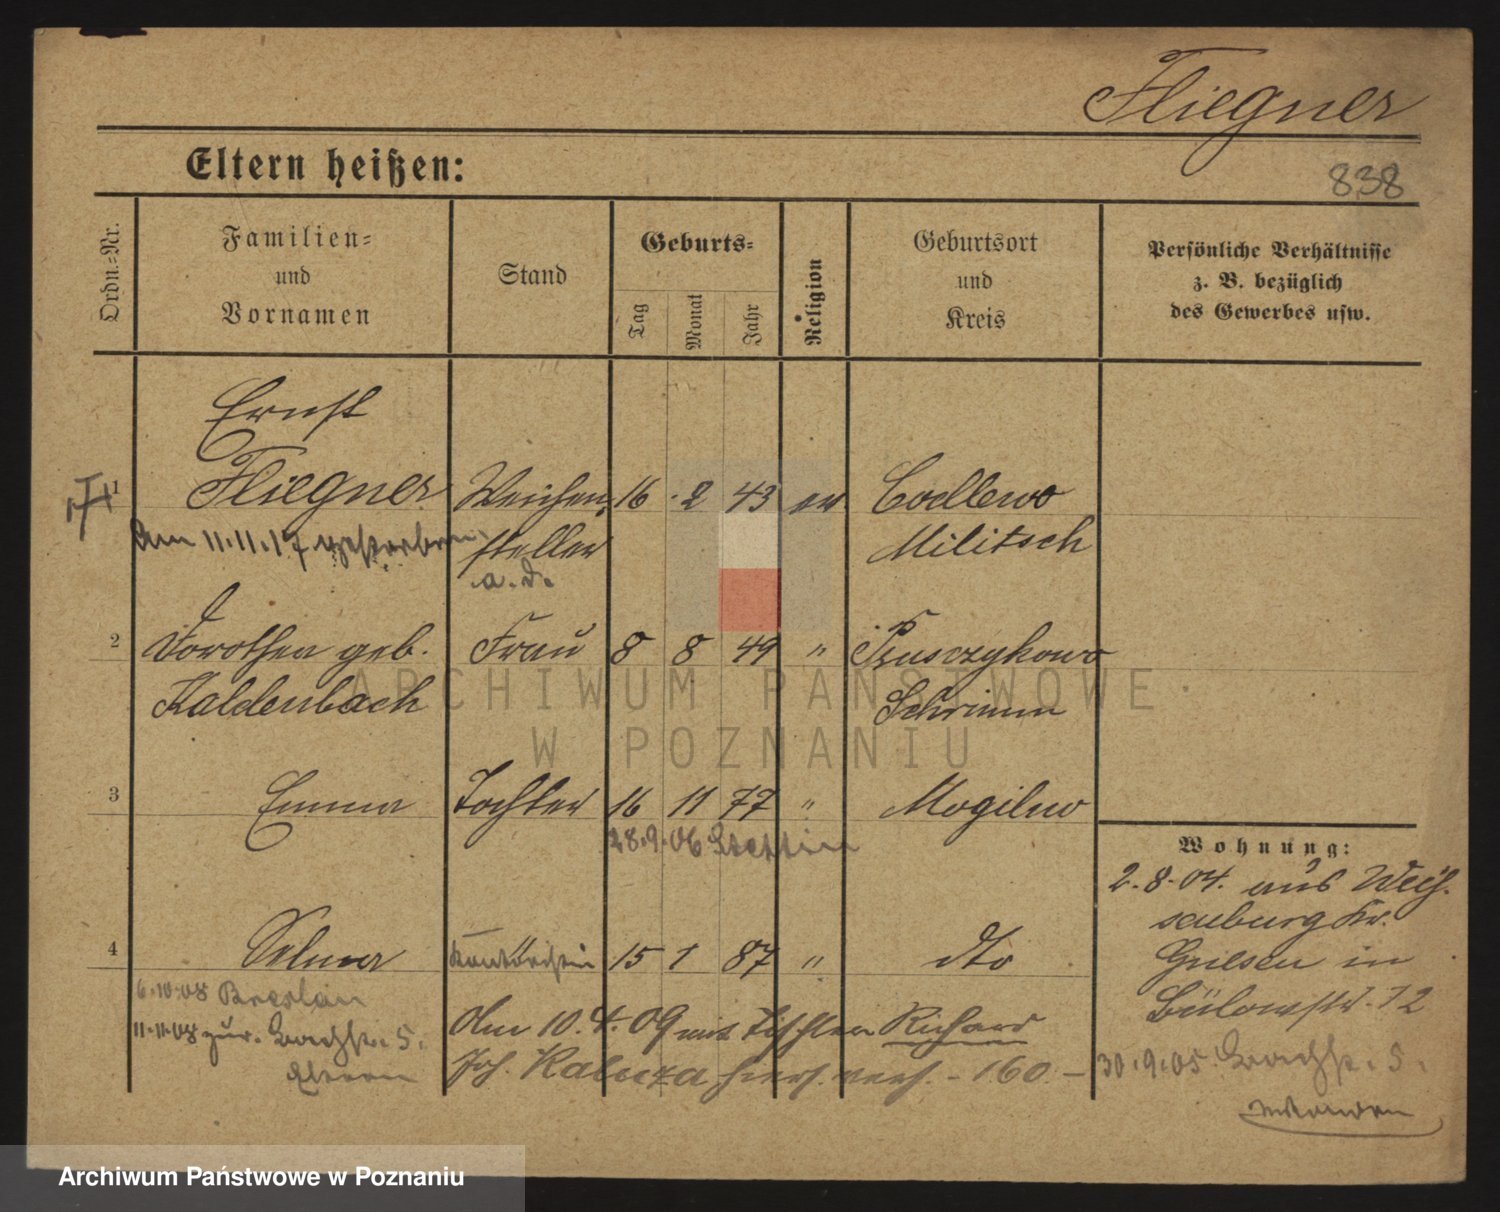 Fliegner
838
Eltern heißen:
Ordn.=Nr.
Familien=
und
Vornamen
Stand
Geburts=
Tag
Monat
Jahr
Religion
Geburtsort
und
Kreis
Persönliche Verhältnisse
z. B. bezüglich
des Gewerbes usw.
Ernst
1 Fliegner Weichen= 16 2 43 ev.
Militsch
am 11.11.17 gestorben. steller
a. D.
2 Dorothea geb. Frau 8 8 49 "
Kaldenbach Schrimm
3 Emma Tochter 16 11 77 " Mogilno
28.9.06 Stettin
Wohnung:
2.8.04. aus Weis=
senburg Kr.
Gnesen in
Bülowstr. 12
4 Selma Kontoristin 15 1 87 " dto
6.10.08 Breslau
11.11.08 zur. 5.
Eltern
Am 10.4.09 mit Tischler Richard
Joh. Kaluza hier verh. - 160 -
30.9.05 5.
ARCHIWUM PAŃSTWOWE
W POZNANIU
Archiwum Państwowe w Poznaniu